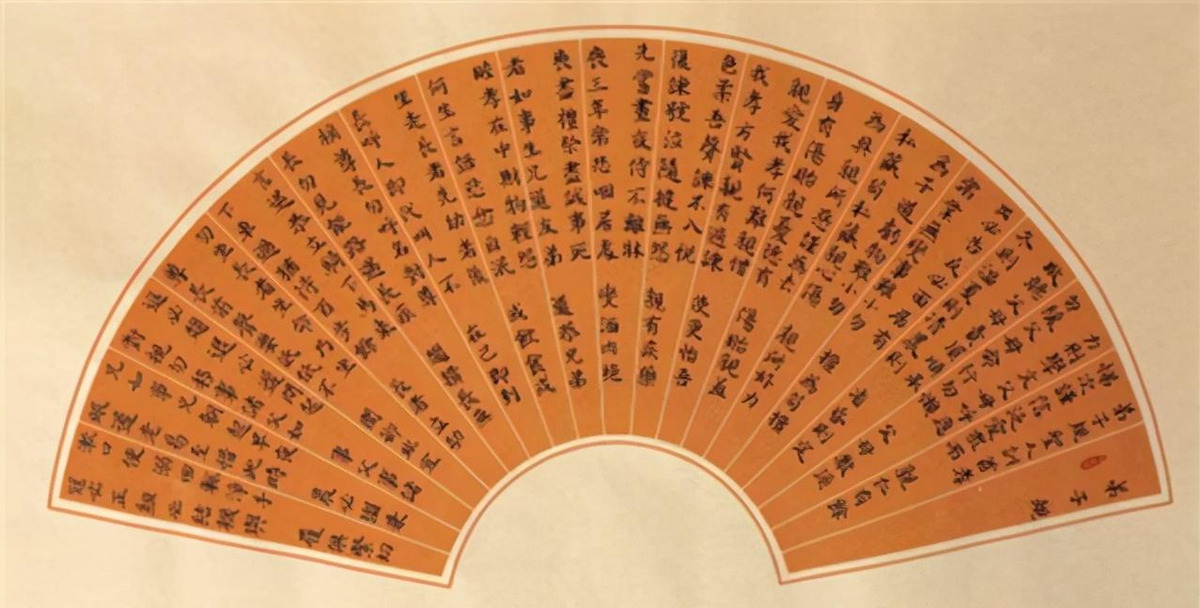 弟子規
弟子規聖人訓首孝
弟次謹信泛愛眾而
親仁有餘
力則學文父母呼應
勿緩父母命行勿懶
父母教須
敬聽父母責須順承
冬則溫夏則凊晨則
省昏則定
出必告反必面居有
常業無變事雖小勿
擅為苟擅
為子道虧物雖小勿
私藏苟私藏親心傷
親所好力
為具親所惡謹為去
身有傷貽親憂德有
傷貽親羞
親愛我孝何難親憎
我孝方賢親有過諫
使更怡吾
色柔吾聲諫不入悅
復諫號泣隨撻無怨
親有疾藥
先嘗晝夜侍不離牀
喪三年常悲咽居處
變酒肉絕
喪盡禮祭盡誠事死
者如事生兄道友弟
道恭兄弟
睦孝在中財物輕怨
何生言語忍忿自泯
或飲食或
坐走長者先幼者後
長呼人即代叫人不
在己即到
稱尊長勿呼名對尊
長勿見能路遇長疾
趨揖長無
言退恭立騎下馬乘
下車過猶待百步餘
長者立幼
勿坐長者坐命乃坐
尊長前聲要低低不
聞卻非宜
進必趨退必遲問起
對視勿移事諸父如
事父事諸
兄如事兄朝起早夜
眠遲老易至惜此時
晨必盥兼
漱口便溺回輒淨手
冠必正紐必結襪與
履俱緊切